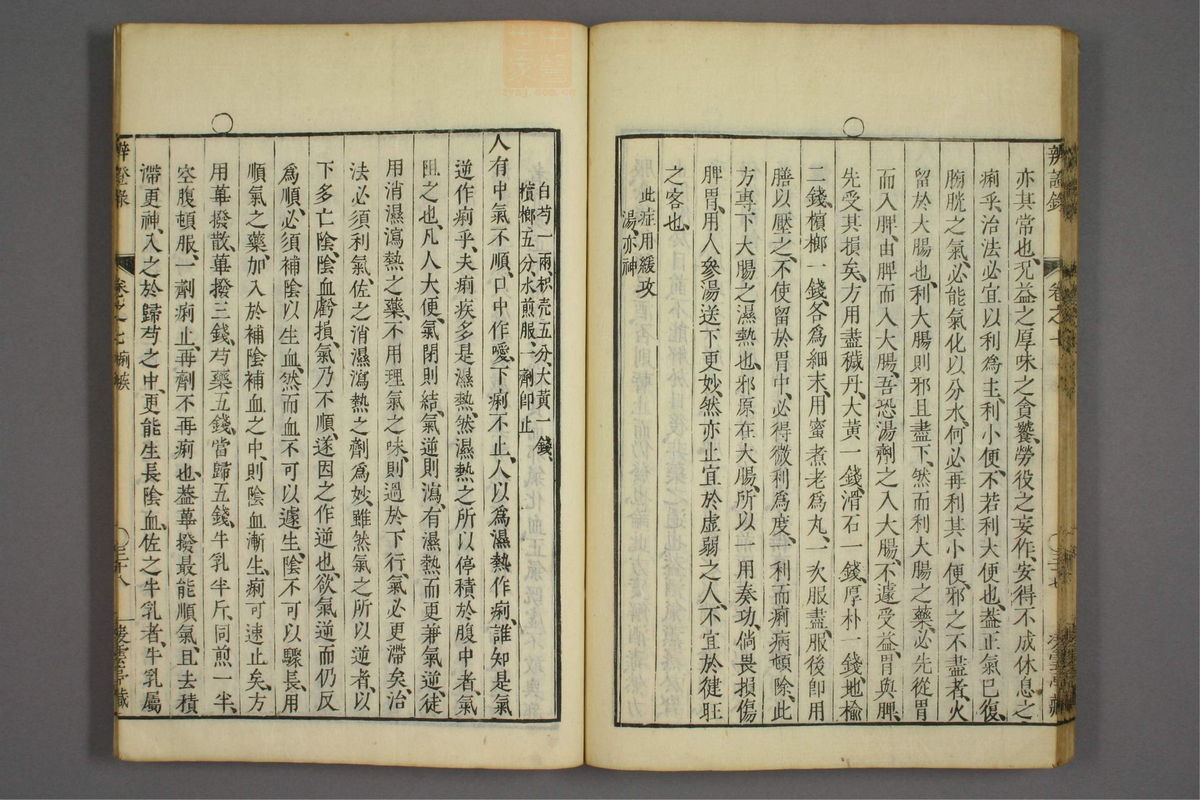 亦其常也、尤益之厚味之貪饕、勞役之妄作、安得不成休息之
痢乎、治法必宜以利為主、利小便、不若利大便也、蓋正氣已復、
膀胱之氣、必能氣化以分水、何必再利其小便、邪之不盡者、火
留於大腸也、利大腸則邪且盡下、然而利大腸之藥、必先從胃
而入脾、由脾而入大腸、吾恐湯劑之入大腸、不遽受益、胃與脾、
先受其損矣、方用盡穢丹、大黃一錢、滑石一錢、厚朴一錢、地榆
二錢、檳榔一錢、各為細末、用蜜煮老為丸、一次服盡、服後即用
膳以壓之、不使留於胃中、必得微利為度、一利而痢病頓除、此
方專下大腸之濕熱也、邪原在大腸、所以一用奏功、倘畏損傷
脾胃、用人參湯送下更妙、然亦止宜於虛弱之人、不宜於健旺
之客也、
此症用緩攻
湯亦神
辨證錄
卷之七
三十七
白芍一兩、枳壳五分、大黃一錢、
檳榔五分、水煎服、一劑即止
人有中氣不順、口中作噯、下痢不止、人以為濕熱作痢、誰知是氣
逆作痢乎、夫痢疾多是濕熱、然濕熱之所以停積於腹中者、氣
阻之也、凡人大便、氣閉則結、氣逆則瀉、有濕熱而更兼氣逆、徒
用消濕瀉熱之藥、不用理氣之味、則過於下行、氣必更滯矣、治
法必須利氣、佐之消濕瀉熱之劑為妙、雖然氣之所以逆者、以
下多亡陰、陰血虧損、氣乃不順、遂因之作逆也、欲氣逆而仍反
為順、必須補陰以生血、然而血不可以遽生、陰不可以驟長、用
順氣之藥、加入於補陰補血之中、則陰血漸生、痢可速止矣、方
用蓽撥散、蓽撥三錢、芍藥五錢、當歸五錢、牛乳半斤、同煎一半、
空腹頓服、一劑痢止、再劑不再痢也、蓋蓽撥最能順氣、且去積
滯更神、入之於歸芍之中、更能生長陰血、佐之牛乳者、牛乳屬
辨證錄
卷之七 痢疾
三十八